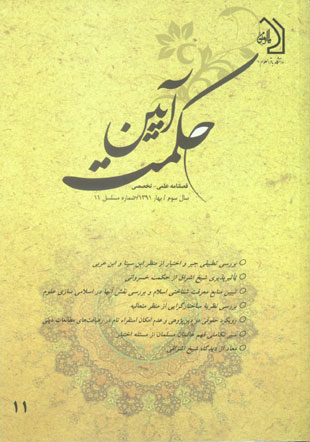 آیین
حکمت
فصلنامه علمی - تخصصی
سال سوم / بهار ۱۳۹۱/شماره مسلسل ۱۱
بررسی تطبیقی جبر و اختیار از منظر ابن سینا و ابن عربی
تاثیرپذیری شیخ اشراق از حکمت خسروانی
تبیین منابع معرفت شناختی اسلام و بررسی نقش آنها در اسلامی سازی علوم
بررسی نظریه ساختارگرایی از منظر متعالیه
رویکرد حقوقی در دین‌پژوهی و عدم امکان استقراء تام در رهیافت‌های مطالعات دینی
سیر تکاملی فهم عالمان مسلمان از مسئله اختیار
معاد از دیدگاه شیخ اشراق
۱۱